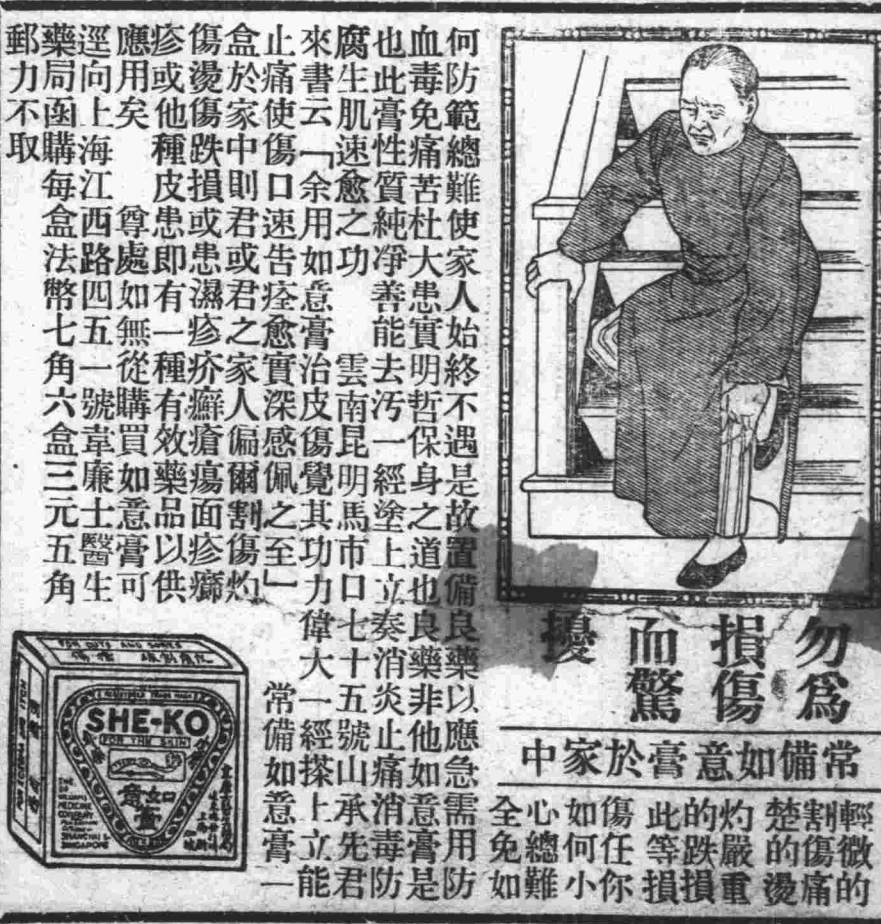 勿爲
損傷
而驚
擾
常備如意膏於家中
輕微的
割傷痛
楚的燙
灼嚴重
的跌損
此等損
傷任你
如何小
心總難
全免如
何防範總難使家人始終不遇是故置備良藥以應急需用防
血毒免痛苦杜大患實明哲保身之道也良藥非他如意膏是
也此膏性質純凈善能去汚一經塗上立奏消炎止痛消毒防
腐生肌速愈之功　雲南昆明馬市口七十五號山承先君
來書云「余用如意膏治皮傷覺其功力偉大一經搽上立能
止痛使傷口速告痊愈實深感佩之至」　常備如意膏一
盒於家中則君或君之家人偏爾割傷灼
傷燙傷跌損或患濕疹疥癬瘡瘍面疹癤
疹或他種皮患即有一種有效藥品以供
應用矣　尊處如無從購買如意膏可
逕向上海江西路四五一號韋廉士醫生
藥局函購每盒法幣七角六盒三元五角
郵力不取
FOR CUTS AND SORES
SHE-KO
FOR THE SKIN
如意
膏
THE
DR
WILLIAMS
MEDICINE
COMPANY
SHANGHAI
SINGAPORE